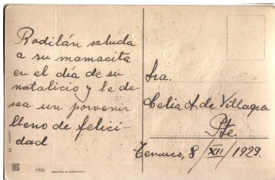 Rodilán saluda
a su mamacita
en el día de su
natalicio y le de-
sea un porvenir
lleno de felici-
dad
Sra.
Celia A. de Villagra
Pte.
Temuco, 8/XII/1929.